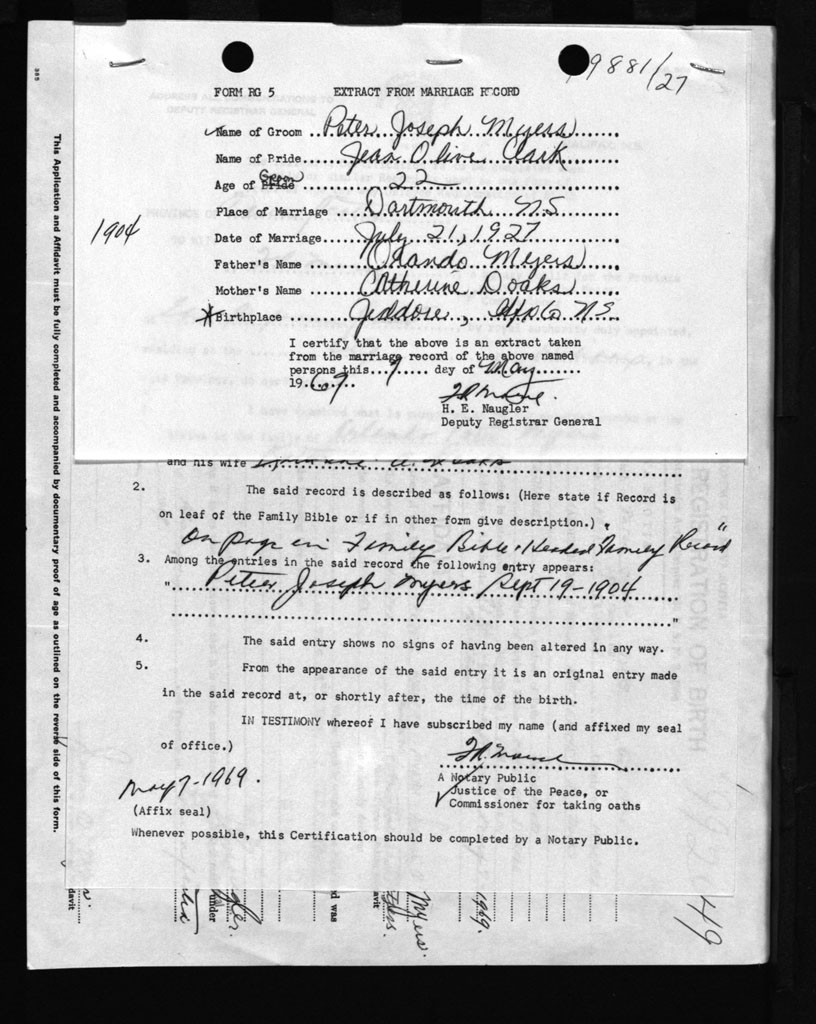 9881/27
FORM RG 5 EXTRACT FROM MARRIAGE RECORD
Name of Groom ..Peter Joseph Myers......
Name of Bride...Jean Olive Clark......
Age of Bride Groom ......22......
Place of Marriage ..Dartmouth N.S......
1904
Date of Marriage...July 21, 1927......
Father's Name ..Orlando Myers......
Mother's Name ..Catherine Doaks......
*Birthplace ..Jeddore, Hfx Co N.S.
I certify that the above is an extract taken
from the marriage record of the above named
persons this...7.... day of May.......
19.69..
H. E. Naugler
Deputy Registrar General
and his wife
2. The said record is described as follows: (Here state if Record is
on leaf of the Family Bible or if in other form give description.)
On page in Family Bible, Headed "Family Record"
3. Among the entries in said record the following entry appears:
"....Peter Joseph Myers Sept 19-1904....
"
4. The said entry shows no signs of having been altered in any way.
5. From the appearance of the said entry it is an original entry made
in the said record at, or shortly after, the time of the birth.
IN TESTIMONY whereof I have subscribed my name (and affixed my seal
of office.)
May 7-1969.
A Notary Public
Justice of the Peace, or
Commissioner for taking oaths
(Affix seal)
Whenever possible, this Certification should be completed by a Notary Public.
This Application and Affidavit must be fully completed and accompanied by documentary proof of age as outlined on the reverse side of this form.
REGISTRATION OF BIRTH
davit
under
d was
davit
Myers.
1969.
49